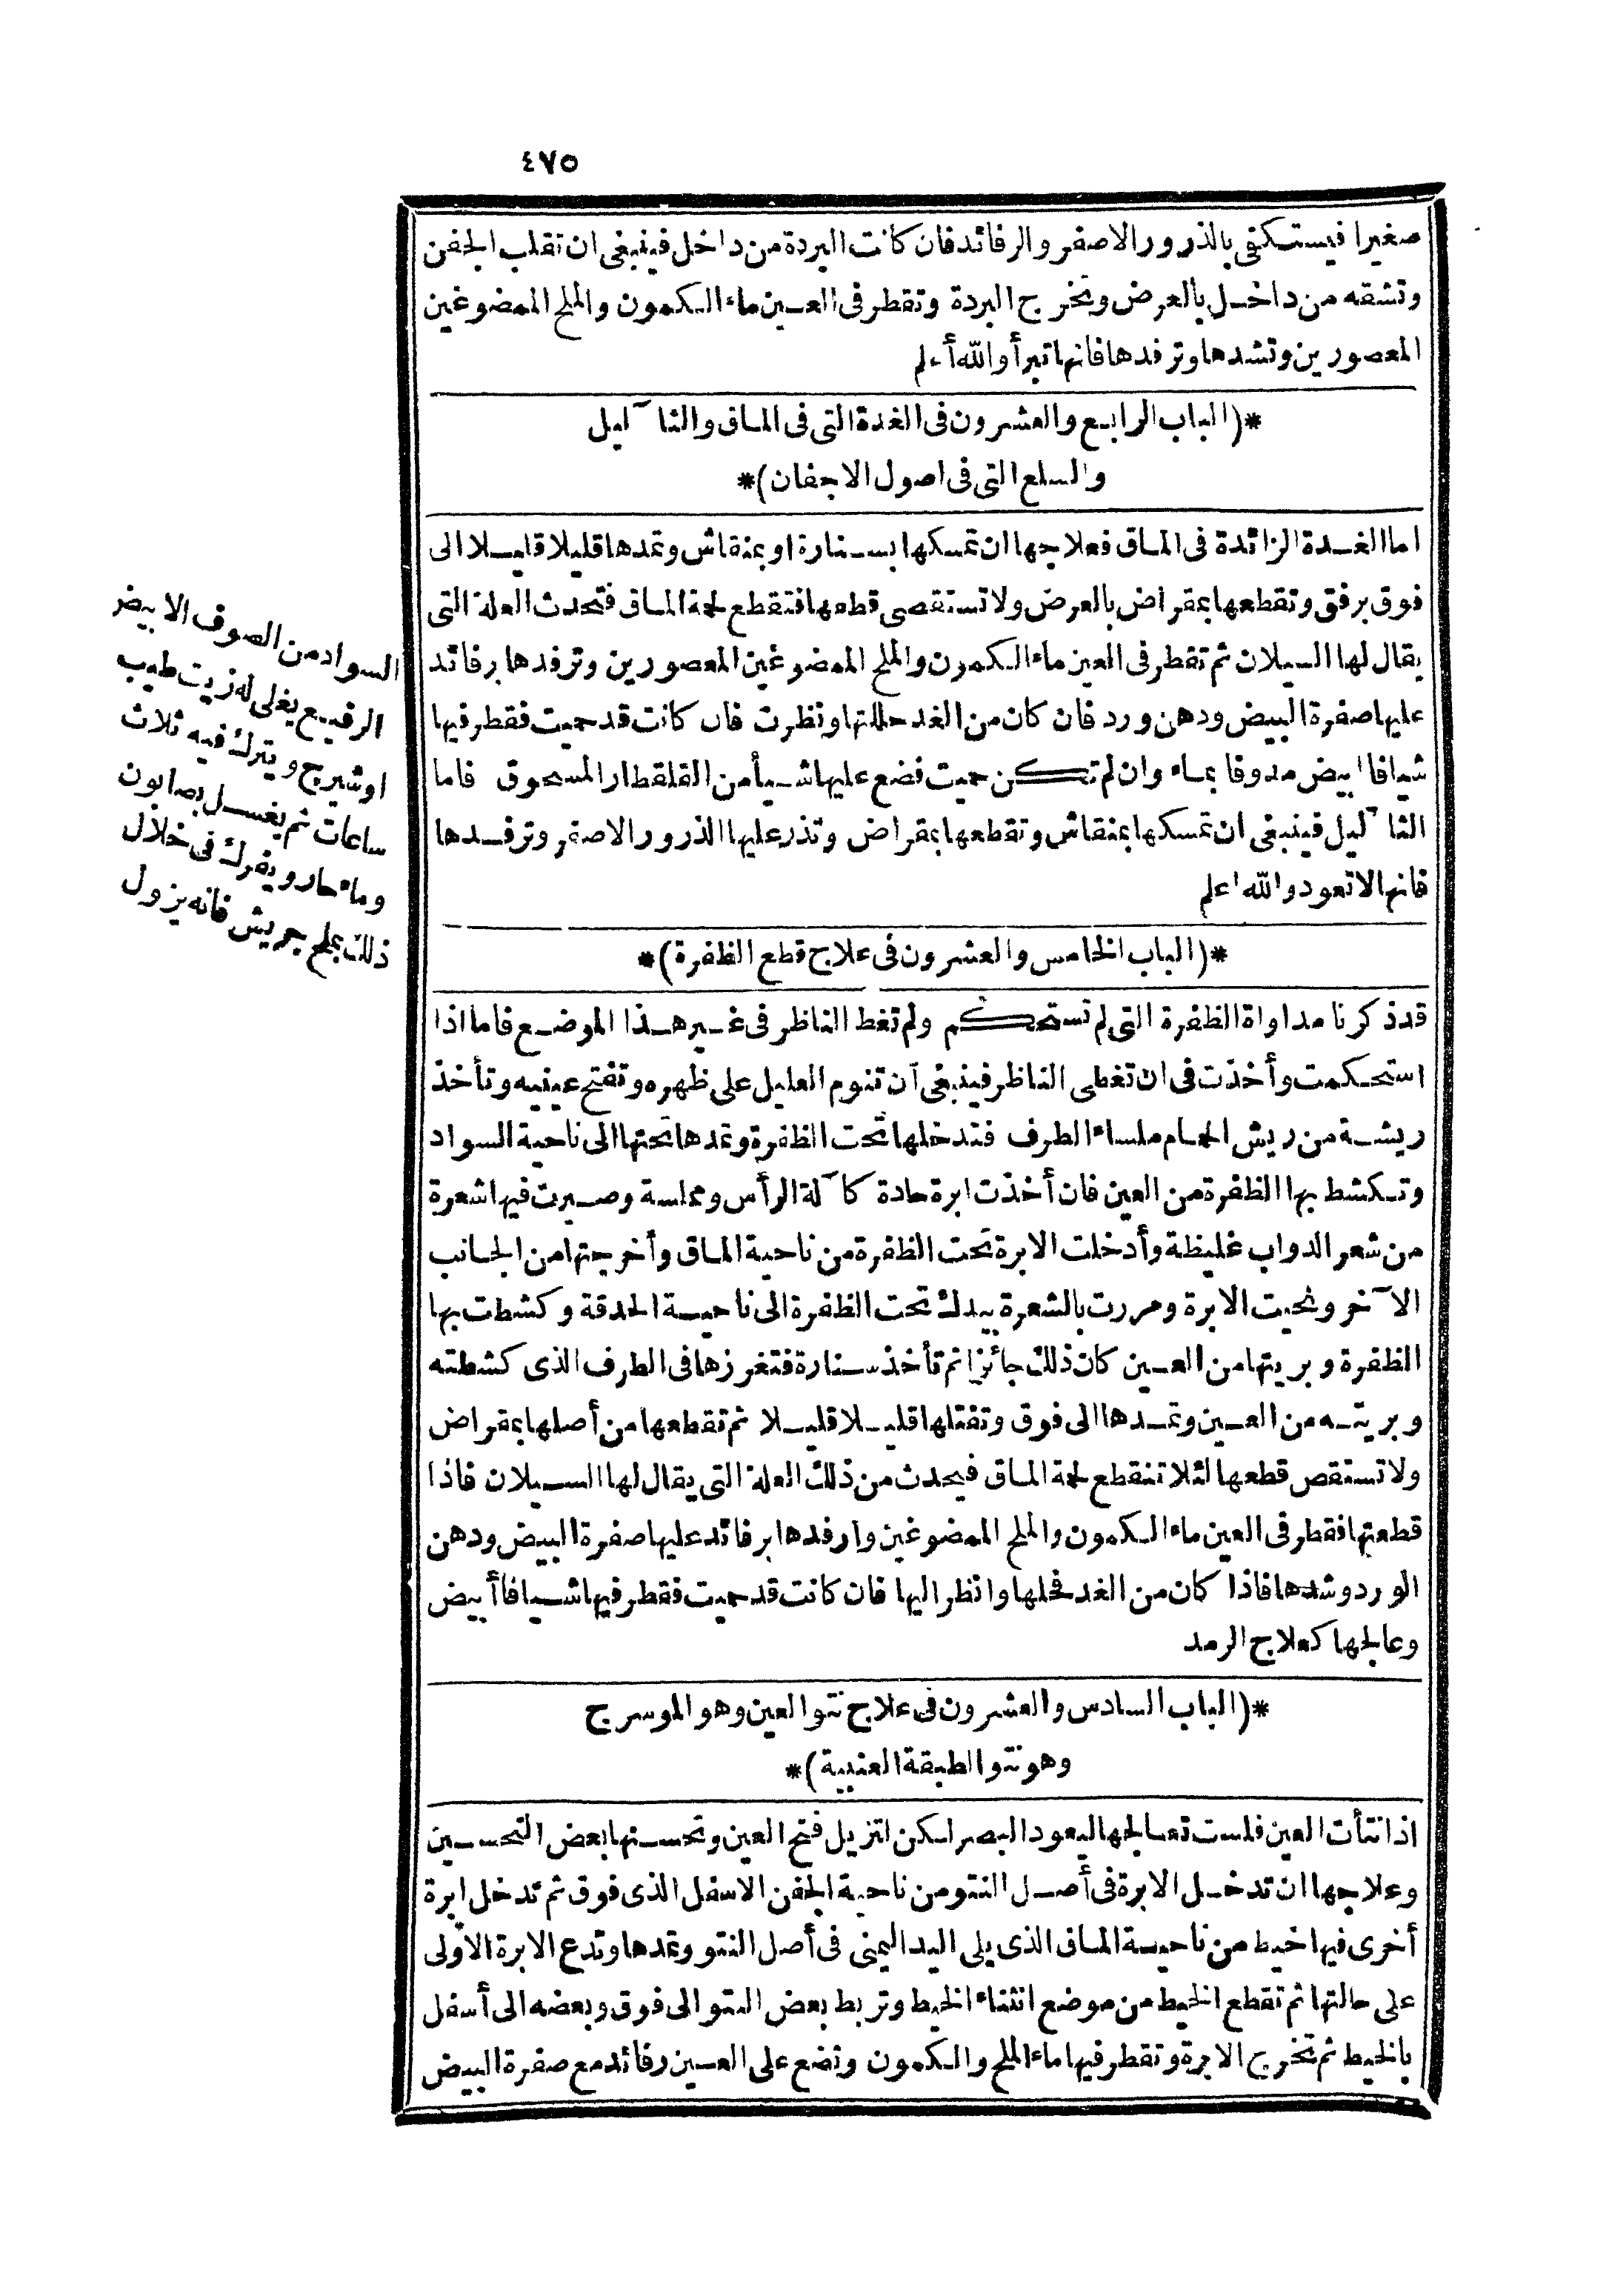 ٤٧٥
صغيرا فيستكفى بالذرور الاصفر والرفائد فان كانت البردة من داخل فينبغى ان تقلب الجفن
وتشقه من داخل بالعرض وتخرج البردة وتقطر فى العين ماء الكمون والملح الممضوغين
المعصورين وتشدها وترفدها فانها تبرأ والله أعلم
*(الباب الرابع والعشرون فى الغدة التى فى الماق والثآليل
والسلع التى فى اصول الاجفان)*
اما الغدة الزائدة فى الماق فعلاجها ان تمسكها بسنارة او بمنقاش وتمدها قليلا قليلا الى
فوق برفق وتقطعها بمقراض بالعرض ولا تستقصى قطعها فتقطع لحمة الماق فتحدث العلة التى
يقال لها السيلان ثم تقطر فى العين ماء الكمون والملح الممضوغين المعصورين وترفدها برفائد
عليها صفرة البيض ودهن ورد فان كان من الغد حللتها ونظرت فان كانت قد حميت فقطر فيها
شيافا ابيض مدوفا بماء وان لم تكن حميت فضع عليها شيأ من القلقطار المسحوق فاما
الثآليل فينبغى ان تمسكها بمنقاش وتقطعها بمقراض وتذر عليها الذرور الاصفر وترفدها
فانها لا تعود والله اعلم
*(الباب الخامس والعشرون فى علاج قطع الظفرة)*
قد ذكرنا مداواة الظفرة التى لم تستحكم ولم تغط الناظر فى غير هذا الموضع فاما اذا
استحكمت وأخذت فى ان تغطى الناظر فينبغى أن تنوم العليل على ظهره وتفتح عينيه وتأخذ
ريشة من ريش الحمام ملساء الطرف فتدخلها تحت الظفرة وتمدها تحتها الى ناحية السواد
وتكشط بها الظفرة من العين فان أخذت ابرة حادة كآلة الرأس ومملسة وصيرت فيها شعرة
من شعر الدواب غليظة وأدخلت الابرة تحت الظفرة من ناحية الماق وأخرجتها من الجانب
الآخر ونحيت الابرة ومررت بالشعرة بيدك تحت الظفرة الى ناحية الحدقة وكشطت بها
الظفرة وبريتها من العين كان ذلك جائزا ثم تأخذ سنارة فتغرزها فى الطرف الذى كشطته
وبريته من العين وتمدها الى فوق وتفتلها قليلا قليلا ثم تقطعها من أصلها بمقراض
ولا تستقص قطعها لئلا تنقطع لحمة الماق فيحدث من ذلك العلة التى يقال لها السيلان فاذا
قطعتها فقطر فى العين ماء الكمون والملح الممضوغين وارفدها برفائد عليها صفرة البيض ودهن
الورد وشدها فاذا كان من الغد فحلها وانظر اليها فان كانت قد حميت فقطر فيها شيافا أبيض
وعالجها كعلاج الرمد
*(الباب السادس والعشرون فى علاج نتو العين وهو الموسرج
وهو نتو الطبقة العنبية)*
اذا نتأت العين فلست تعالجها ليعود البصر لكن لتزيل فتح العين وتحسنها بعض التحسين
وعلاجها ان تدخل الابرة فى أصل النتو من ناحية الجفن الاسفل الذى فوق ثم تدخل ابرة
أخرى فيها خيط من ناحية الماق الذى يلى اليد اليمنى فى أصل النتو وتمدها وتدع الابرة الأولى
على حالتها ثم تقطع الخيط من موضع انثناء الخيط وتربط بعض النتو الى فوق وبعضه الى أسفل
بالخيط ثم تخرج الابرة وتقطر فيها ماء الملح والكمون وتضع على العين رفائد مع صفرة البيض
السواد من الصوف الابيض
الرفيع يغلى له زيت طيب
او شيرج ويترك فيه ثلاث
ساعات ثم يغسل بصابون
وماء حار ويفرك فى خلال
ذلك بملح جريش فانه يزول